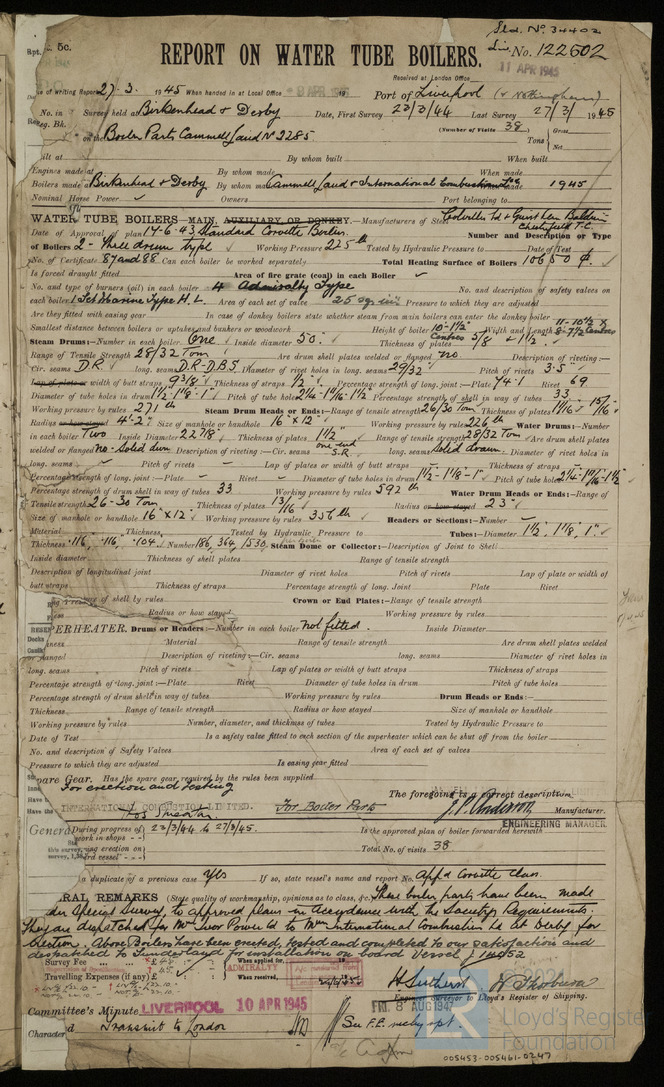 Sld. No. 34402
Rpt. 5c.
REPORT ON WATER TUBE BOILERS.
Liv. No. 122602
11 APR 1945
Received at London Office
of Writing Report 27.3.1945 When handed in at Local Office 19 Port of Liverpool (& Nottingham)
No. in Survey held at Birkenhead & Derby Date, First Survey 22/3/44 Last Survey 27/3/1945
Reg. Bk. (Number of Visits 38)
on the Boiler Parts Cammell Laird No 2285 Tons Gross Net
Built at By whom built When built
Engines made at By whom made When made
Boilers made at Birkenhead & Derby By whom made Cammell Laird & International Combustion Ltd made 1945
Nominal Horse Power Owners Port belonging to
WATER TUBE BOILERS—MAIN, AUXILIARY, OR DONKEY.—Manufacturers of Steel Colvilles Ltd & Guest Keen Baldwin Chesterfield T.C.
Date of Approval of plan 14-6-43 Standard Corvette Boilers. Number and Description or Type
of Boilers 2 - Three drum type Working Pressure 225 lb Tested by Hydraulic Pressure to Date of Test
No. of Certificate 87 and 88 Can each boiler be worked separately Total Heating Surface of Boilers 10650
Is forced draught fitted Area of fire grate (coal) in each Boiler
No. and type of burners (oil) in each boiler 4 Admiralty Type No. and description of safety valves on
each boiler 1 Set Marine Type H.L. Area of each set of valves 25 sq ins Pressure to which they are adjusted
Are they fitted with easing gear In case of donkey boilers state whether steam from main boilers can enter the donkey boiler
Smallest distance between boilers or uptakes and bunkers or woodwork Height of boiler 10-1½" Centres Width and Length 11-10½ x 8-7½ Centres
Steam Drums:—Number in each boiler One Inside diameter 50" Thickness of plates 5/8 & 1½"
Range of Tensile Strength 28/32 Tons Are drum shell plates welded or flanged no Description of riveting:—
Cir. seams D.R long. seams D.R-D.B.S. Diameter of rivet holes in long. seams 29/32 Pitch of rivets 3.5"
Lap of plates or width of butt straps 9 3/8 Thickness of straps 1/2" Percentage strength of long. joint:—Plate 74.1 Rivet 69
Diameter of tube holes in drum 1½-1⅛-1" Pitch of tube holes Percentage strength of shell in way of tubes 33
Working pressure by rules 271 lb Steam Drum Heads or Ends:—Range of tensile strength 26/30 Tons Thickness of plates 1 1/16 15/16
Radius or how stayed 4'-2" Size of manhole or handhole 16"x12" Working pressure by rules 226 lb Water Drums:—Number
in each boiler Two Inside Diameter 22 7/8" Thickness of plates 1½" Range of tensile strength 28/32 Tons Are drum shell plates
welded or flanged no-Solid drum Description of riveting:—Cir. seams one end S.R. long. seams Solid drawn. Diameter of rivet holes in
long. seams Pitch of rivets Lap of plates or width of butt straps Thickness of straps
Percentage strength of long. joint:—Plate Rivet Diameter of tube holes in drum 1½-1⅛-1" Pitch of tube holes
Percentage strength of drum shell in way of tubes 33 Working pressure by rules 592 lb Water Drum Heads or Ends:—Range of
Tensile strength 26-30 Tons Thickness of plates 13/16 Radius or how stayed 23"
Size of manhole or handhole 16"x12" Working pressure by rules 356 lb Headers or Sections:—Number
Material Thickness Tested by Hydraulic Pressure to Tubes:—Diameter 1½, 1⅛, 1"
Thickness .116, .116, .104 Number 186, 364, 1530 Steam Dome or Collector:—Description of Joint to Shell
Inside diameter Thickness of shell plates Range of tensile strength
Description of longitudinal joint Diameter of rivet holes Pitch of rivets Lap of plate or width of
butt straps Thickness of straps Percentage strength of long. Joint Plate Rivet
pressure of shell by rules Crown or End Plates:—Range of tensile strength
Radius or how stayed Working pressure by rules
PERHEATER. Drums or Headers:—Number in each boiler Not fitted. Inside Diameter
ness Material Range of tensile strength Are drum shell plates welded
or flanged Description of riveting:—Cir. seams long. seams Diameter of rivet holes in
long. seams Pitch of rivets Lap of plates or width of butt straps Thickness of straps
Percentage strength of long. joint:—Plate Rivet Diameter of tube holes in drum Pitch of tube holes
Percentage strength of drum shell in way of tubes Working pressure by rules Drum Heads or Ends:—
Thickness Range of tensile strength Radius or how stayed Size of manhole or handhole
Working pressure by rules Number, diameter, and thickness of tubes Tested by Hydraulic Pressure to
Date of Test Is a safety valve fitted to each section of the superheater which can be shut off from the boiler
No. and description of Safety Valves Area of each set of valves
Pressure to which they are adjusted Is easing gear fitted
Spare Gear. Has the spare gear required by the rules been supplied
For erection and testing
The foregoing is a correct description,
INTERNATIONAL COMBUSTION LIMITED. For Boiler Parts J.P. Anderson Manufacturer.
ENGINEERING MANAGER.
General During progress of work in shops 22/3/44 to 27/3/45. Is the approved plan of boiler forwarded herewith
this survey, erection on board vessel Total No. of visits 38
a duplicate of a previous case Yes If so, state vessel's name and report No. Appd Corvette Class.
RAL REMARKS (State quality of workmanship, opinions as to class, &c. These boiler parts have been made
under Special Survey, to approved plans in accordance with the Society's Requirements.
They are dispatched for to Mess International Combustion Ltd at Derby for
erection. Above Boilers have been erected, tested and completed to our satisfaction and
despatched to Sunderland for installation on board Vessel
Survey Fee When applied for,
ADMIRALTY
Travelling Expenses (if any) £ When received,
Engineer Surveyor to Lloyd's Register of Shipping.
Committee's Minute LIVERPOOL 10 APR 1945 FRI. 8 AUG 1947
Character Transmit to London See F.E. mchy rpt.
Lloyd's Register
Foundation
005453-005461-0247